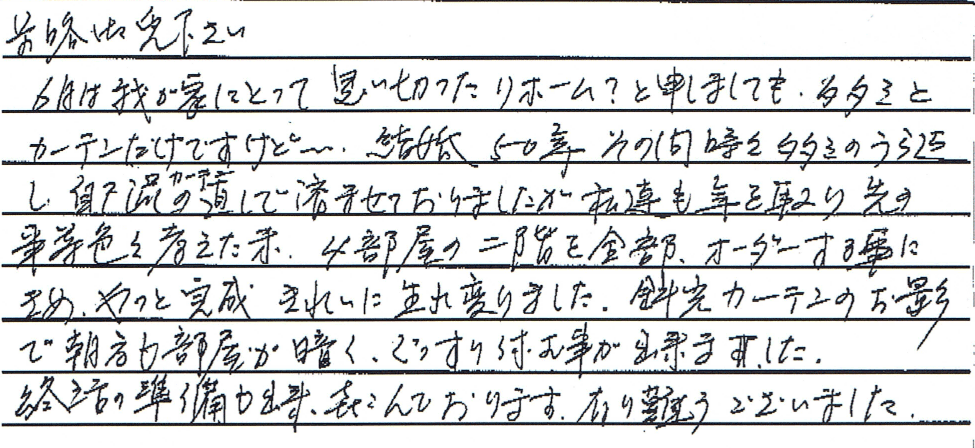 前略御免下さい
6月は我が家にとって思い切ったリホーム?と申しましても、タタミと
カーテンだけですけど〜、結婚50年その間時々タタミのうら返
し カーテンの直しで済ませておりましたが私達も年を取り先の
事等色々考えた末、4部屋の二階を全部、オーダーする事に
きめ、やっと完成 きれいに生れ変りました。斜光カーテンのお影
で朝方も部屋が暗く、ぐっすり休む事が出来ました。
終活の準備も出来、喜こんでおります。有り難うございました。